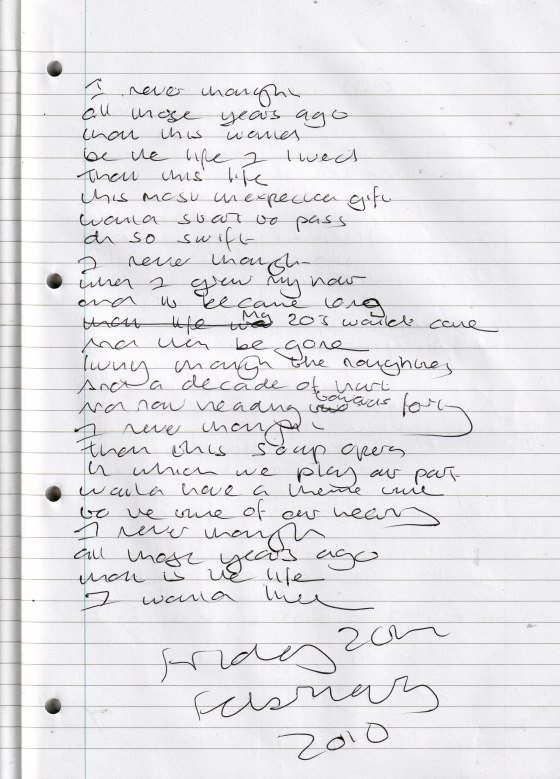 I never thought
all those years ago
that this would
be the life I lived
that this life
this most unexpected gift
would start to pass
oh so swift
I never thought
when I grew my hair
and it became long
that life wo My 20s would come
and then be gone
living through the naughties
and a decade of
and now heading towards forty
I never thought
that this soap opera
in which we play our part
would have a theme tune
to the tune of our hearts
I never thought
all those years ago
that is the life
I would live
Friday
February
2010